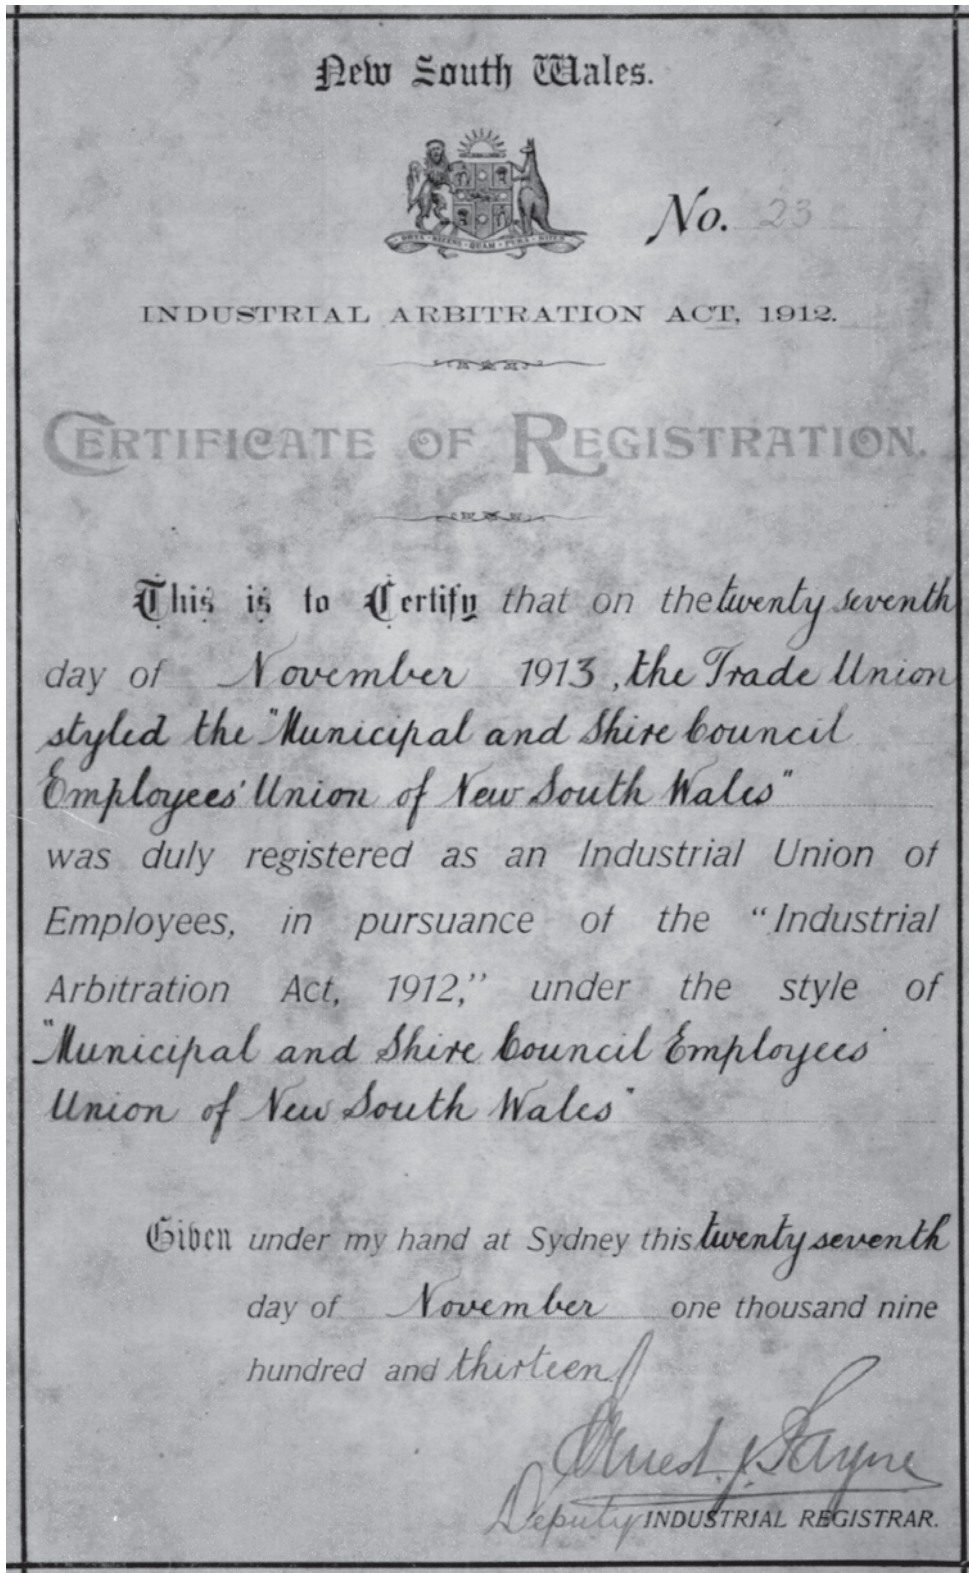 New South Wales.
ORTA RECENS QUAM PURA NITES
No. 23
INDUSTRIAL ARBITRATION ACT, 1912.
CERTIFICATE OF REGISTRATION.
This is to Certify that on the twenty seventh
day of November 1913, the Trade Union
styled the "Municipal and Shire Council
Employees' Union of New South Wales"
was duly registered as an Industrial Union of
Employees, in pursuance of the "Industrial
Arbitration Act, 1912," under the style of
"Municipal and Shire Council Employees'
Union of New South Wales"
Given under my hand at Sydney this twenty seventh
day of November one thousand nine
hundred and thirteen
J.
Deputy INDUSTRIAL REGISTRAR.